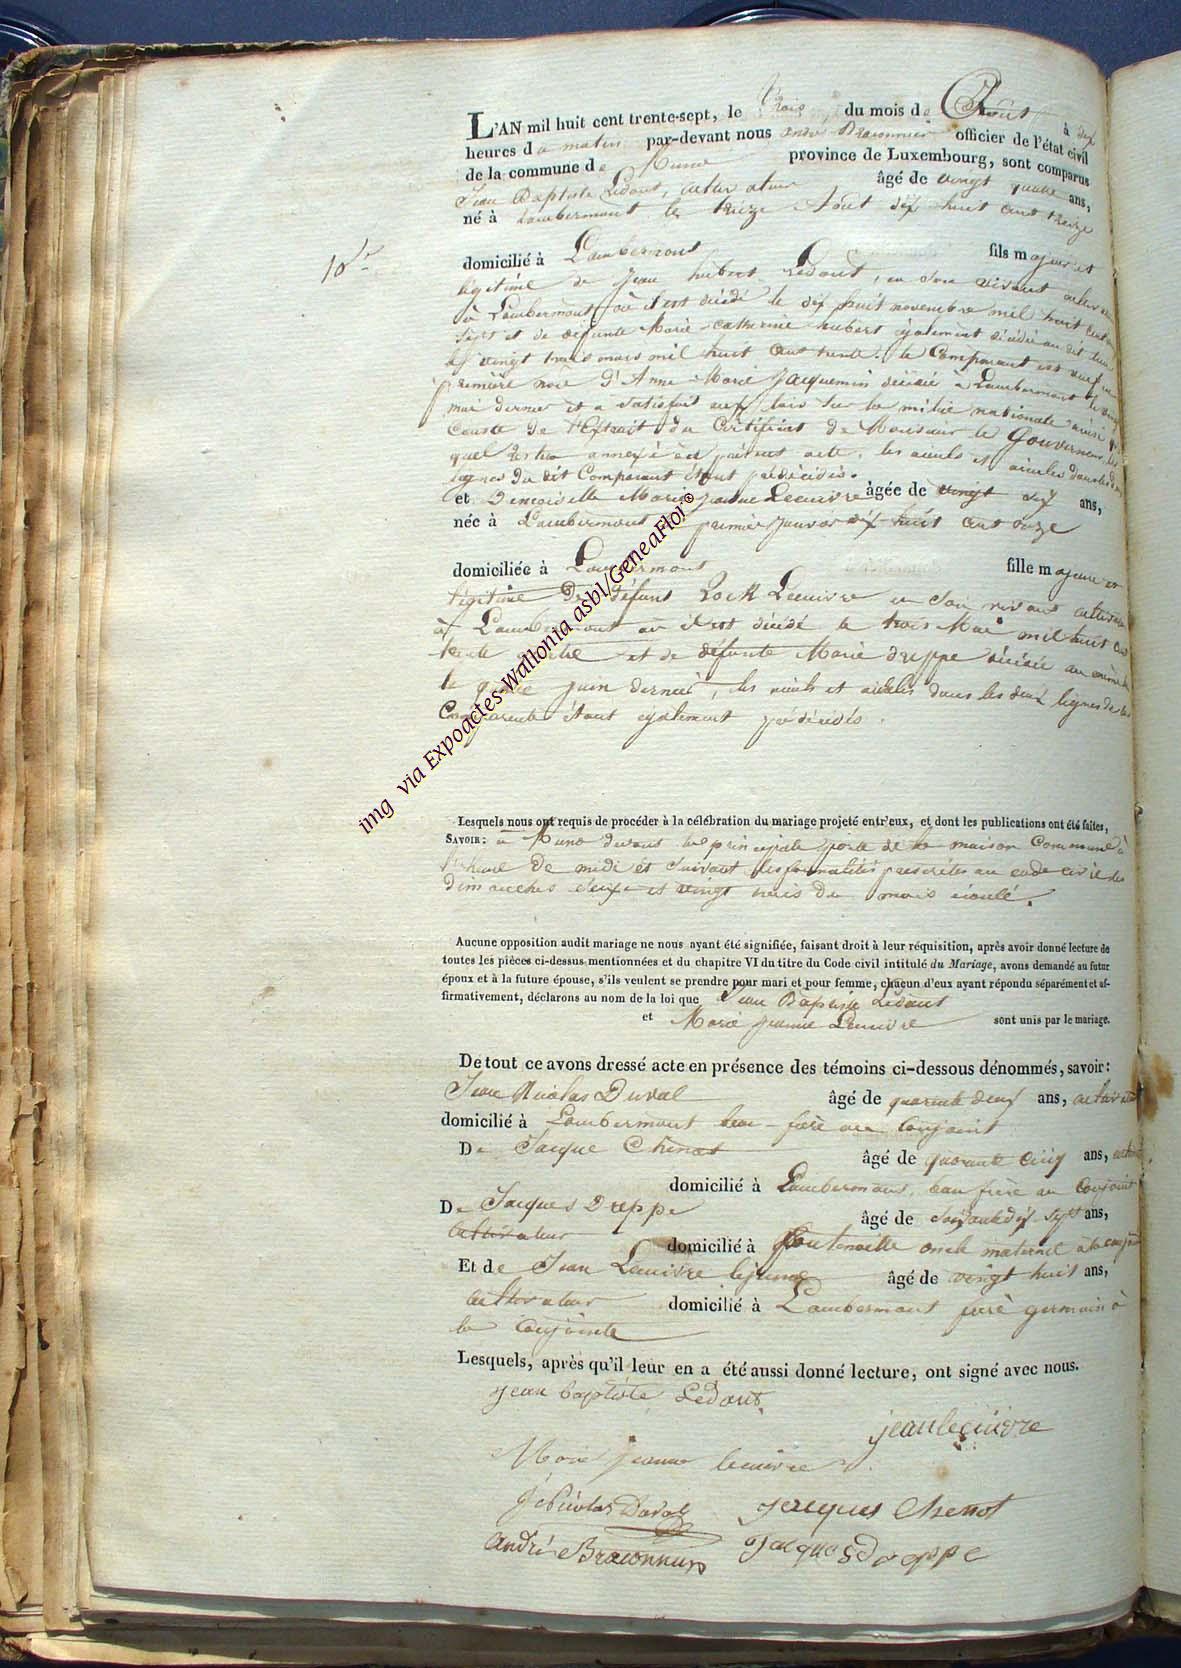 L'AN mil huit cent trente-sept, le trois du mois de Août à dix
heures du matin par-devant nous André Braconnier officier de l'état civil
de la commune de Muno province de Luxembourg, sont comparus
Jean Baptiste Ledant, cultivateur âgé de vingt quatre ans,
né à Lambermont le treize Août dix huit cent treize
10
domicilié à Lambermont fils majeur et
légitime de Jean hubert Ledant, en son vivant cultivateur
à Lambermont où il est décédé le dix huit novembre mil huit cent
sept et de défunte Marie-catherine hubert également décédée au dit lieu
le vingt trois mars mil huit cent trente. le Comparant est veuf en
première noce d'Anne-Marie Jacquemin décédée à Lambermont le
mai dernier et a satisfait aux lois sur la milice nationale ainsi qu'il
conste de l'Extrait du Certificat de Monsieur le Gouverneur
quel restera annexé au présent acte, les aïeuls et aïeules dans les deux
lignes du dit Comparant étant prédécédés.
et Demoiselle Marie Jeanne Lecuivre âgée de vingt six ans,
née à Lambermont le premier Janvier dix huit cent onze
domiciliée à Lambermont fille majeure et
légitime de défunt Lecuivre en son vivant cultivateur
à Lambermont où il est décédé le trois Mai mil huit cent
trente quatre et de défunte Marie dreppe décédée au même
le quinze juin dernier, les aïeuls et aïeules dans les deux lignes de la
Comparante étant également prédécédés.
Lesquels nous ont requis de procéder à la célébration du mariage projeté entr'eux, et dont les publications ont été faites,
SAVOIR: à Muno devant la principale porte de la maison Commune à
l'heure de midi et suivant les formalités prescrites au code civil les
dimanches seize et vingt trois du mois écoulé.
Aucune opposition audit mariage ne nous ayant été signifiée, faisant droit à leur réquisition, après avoir donné lecture de
toutes les pièces ci-dessus mentionnées et du chapitre VI du titre du Code civil intitulé du Mariage, avons demandé au futur
époux et à la future épouse, s'ils veulent se prendre pour mari et pour femme, chacun d'eux ayant répondu séparément et af-
firmativement, déclarons au nom de la loi que Jean Baptiste Ledant
et Marie Jeanne Lecuivre sont unis par le mariage.
De tout ce avons dressé acte en présence des témoins ci-dessous dénommés, savoir:
Jean Nicolas Duval âgé de quarante deux ans, cultivateur
domicilié à Lambermont beau-frère au Conjoint
De Jacque Chenot âgé de quarante cinq ans,
domicilié à Lambermont, beau frère au Conjoint
De Jacques Dreppe âgé de soixante dix sept ans,
cultivateur domicilié à fontenoille oncle maternel à la conjointe
Et de Jean Lecuivre le jeune âgé de vingt huit ans,
cultivateur domicilié à Lambermont frère germain à
la Conjointe
Lesquels, après qu'il leur en a été aussi donné lecture, ont signé avec nous.
jean baptiste Ledant
jean lecuivre
Marie jeanne lecuivre
J Nicolas Duval jacques Chenot
André Braconnier Jacques dreppe
img via Expoactes-Wallonia asbl/GeneaFlor©